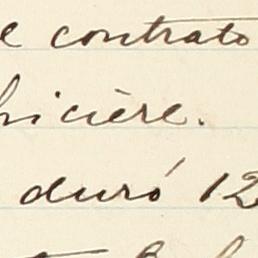 e contrato
hiciere.
duró 12